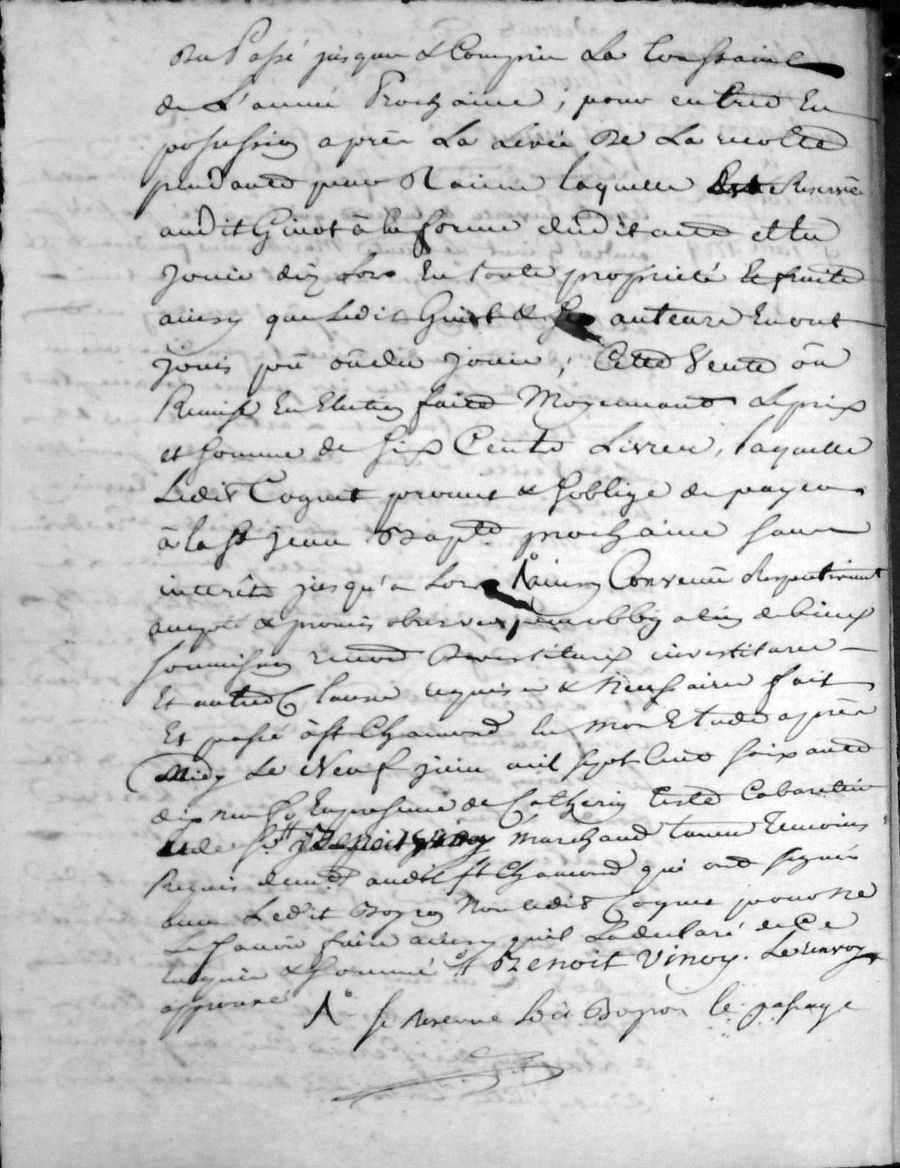 du Passé jusque & Compris La Toussaint
de L'année Prochaine, pour entrer En
possession après La Levée De La recolte
pendante pour Racine laquelle Est Reservée
audit Ginot à la forme dudit et en
Jouir dez Lors En toute propriété Et fruits
ainsy que Ledit Ginot & Ses auteurs En ont
Jouis pû ou dû Jouir, Cette Vente ou
Remise En faite Moyennant Le prix
et Somme de Six Cents Livres, laquelle
Ledit Coguet promet & Soblige de payer
à la St jean Bapte prochaine Sans
interêts jusqu'a Lors ainsy Convenu Respectivement
accepté & promis observer par oblig ation de biens
Soumission renond Devestiture investiture
Et autres Clauses requises & Necessaires fait
Et passé à St Chamond En Mon Etude après
Midy Le Neuf juin mil Sept Cent Soixante
dix neuf En presence de Catherin teste Cabaretier
et de Sr Benoit Vinoy Marchand tanneur Temoins
Requis audit St Chamond qui ont Signés
avec Ledit Boyron Non Ledit Coguet pour Ne
Le Savoir faire ainsy quil La declaré de Ce
Enquis & Sommé Benoit Vinoy. Le renvoy
approuvé
Se Reserve Ledit Boyron le passage